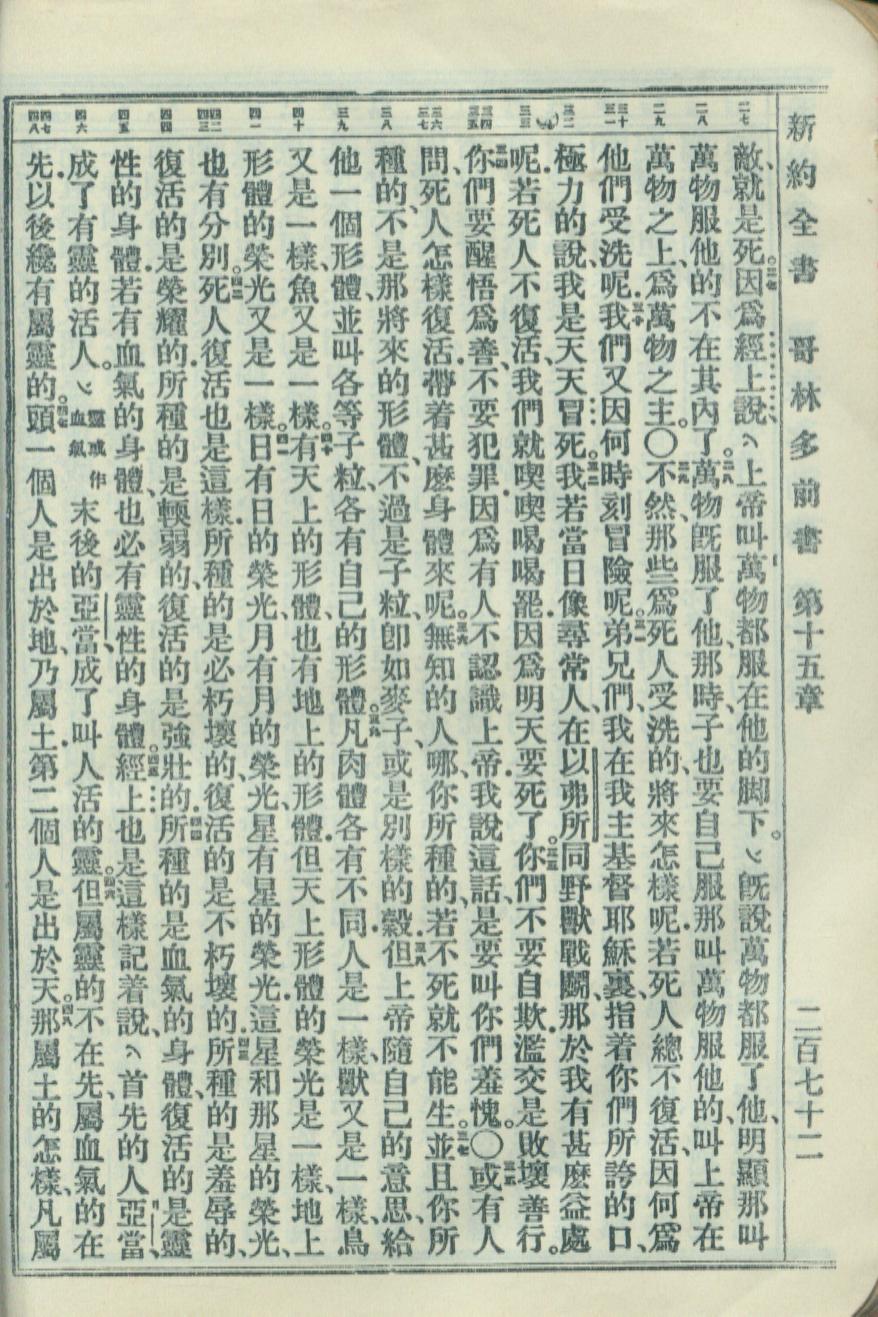 新約全書 哥林多前書 第十五章 二百七十二
二七 二八 二九 三十 三一 三二 三三 三四 三五 三六 三七 三八 三九 四十 四一 四二 四三 四四 四五 四六 四七 四八
敵、就是死。二七因爲經上說、︿上帝叫萬物都服在他的脚下。﹀旣說萬物都服了他、明顯那叫
萬物服他的、不在其內了。二八萬物旣服了他、那時子也要自己服那叫萬物服他的、叫上帝在
萬物之上、爲萬物之主。〇二九不然、那些爲死人受洗的、將來怎樣呢.若死人總不復活、因何爲
他們受洗呢.三十我們又因何時刻冒險呢.三一弟兄們、我在我主基督耶穌裏、指着你們所誇的口、
極力的說、我是天天冒死。三二我若當日像尋常人、在以弗所同野獸戰鬭、那於我有甚麽益處
呢.若死人不復活、我們就喫喫喝喝罷.因爲明天要死了。三三你們不要自欺.濫交是敗壞善行。
三四你們要醒悟爲善、不要犯罪.因爲有人不認識上帝.我說這話、是要叫你們羞愧。〇三五或有人
問、死人怎樣復活.帶着甚麽身體來呢。三六無知的人哪、你所種的、若不死就不能生。三七並且你所
種的、不是那將來的形體、不過是子粒、卽如麥子、或是別樣的穀.三八但上帝隨自己的意思、給
他一個形體、並叫各等子粒、各有自己的形體。三九凡肉體各有不同.人是一樣、獸又是一樣、鳥
又是一樣、魚又是一樣。四十有天上的形體、也有地上的形體.但天上形體的榮光是一樣、地上
形體的榮光又是一樣。四一日有日的榮光、月有月的榮光、星有星的榮光.這星和那星的榮光、
也有分別。四二死人復活也是這樣.所種的是必朽壞的、復活的是不朽壞的.四三所種的是羞辱的、
復活的是榮耀的.所種的是輭弱的、復活的是強壯的.四四所種的是血氣的身體、復活的是靈
性的身體.若有血氣的身體、也必有靈性的身體。四五經上也是這樣記着說、︿首先的人亞當、
成了有靈的活人。﹀靈或作血氣 末後的亞當、成了叫人活的靈。四六但屬靈的不在先、屬血氣的在
先.以後纔有屬靈的。四七頭一個人是出於地、乃屬土.第二個人是出於天。四八那屬土的怎樣、凡屬